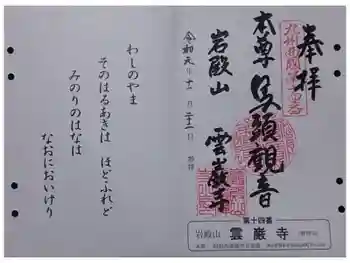 奉拝
本尊 馬頭観音
岩殿山 雲巌寺
令和元年十一月二十一日
わしのやま
そのはるあきは ほどふれど
みのりのはなは
なおにおいけり
第十四番
岩殿山 雲巌寺